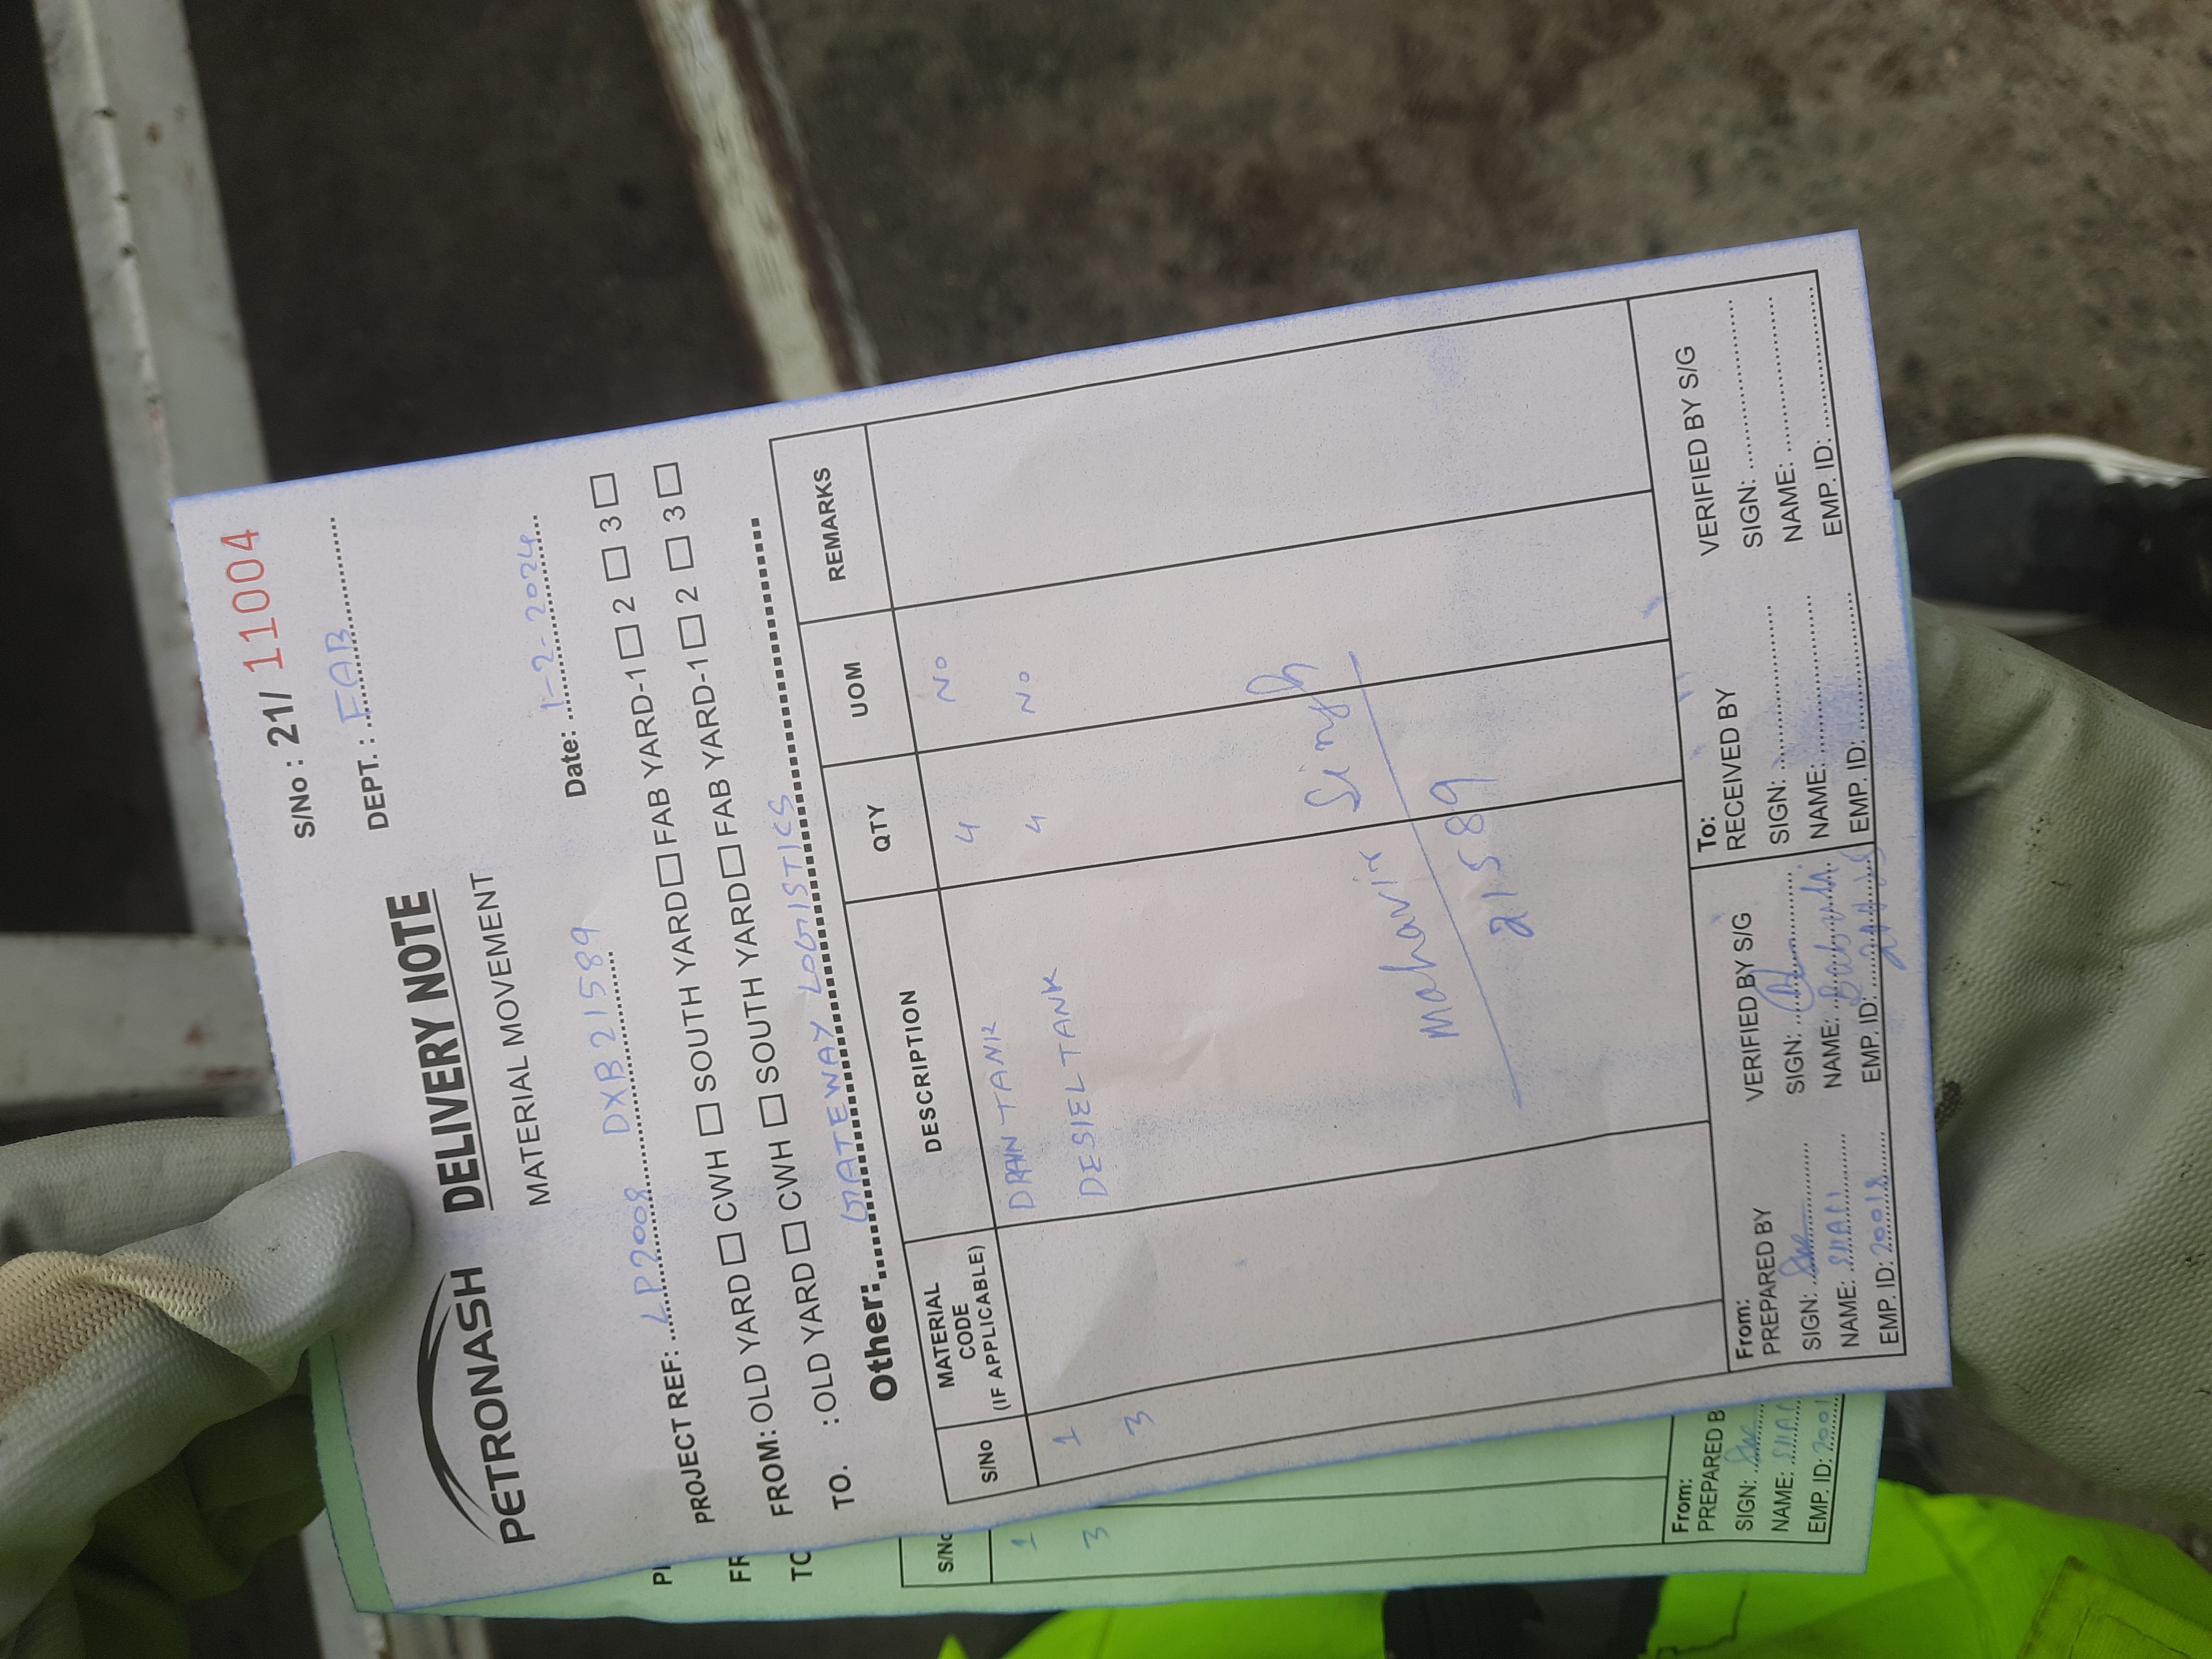 S/No : 21/ 11004
DEPT. : FAB
PETRONASH
DELIVERY NOTE
MATERIAL MOVEMENT
Date: 1-2-2024
PROJECT REF: LP2008 DXB21589
FROM: OLD YARD CWH SOUTH YARD FAB YARD-1 2 3
TO. : OLD YARD CWH SOUTH YARD FAB YARD-1 2 3
Other: GATEWAY LOGISTICS
S/No MATERIAL CODE (IF APPLICABLE) DESCRIPTION QTY UOM REMARKS
1 DRAIN TANK 4 No
3 DESIEL TANK 4 No
Mahavir Singh
21589
From:
PREPARED BY
SIGN:
NAME: SHAFI
EMP. ID: 20018
VERIFIED BY S/G
SIGN:
NAME:
EMP. ID:
To:
RECEIVED BY
SIGN:
NAME:
EMP. ID:
VERIFIED BY S/G
SIGN:
NAME:
EMP. ID:
S/No
1
3
From:
PREPARED B
SIGN:
NAME: SHAF
EMP. ID: 2001